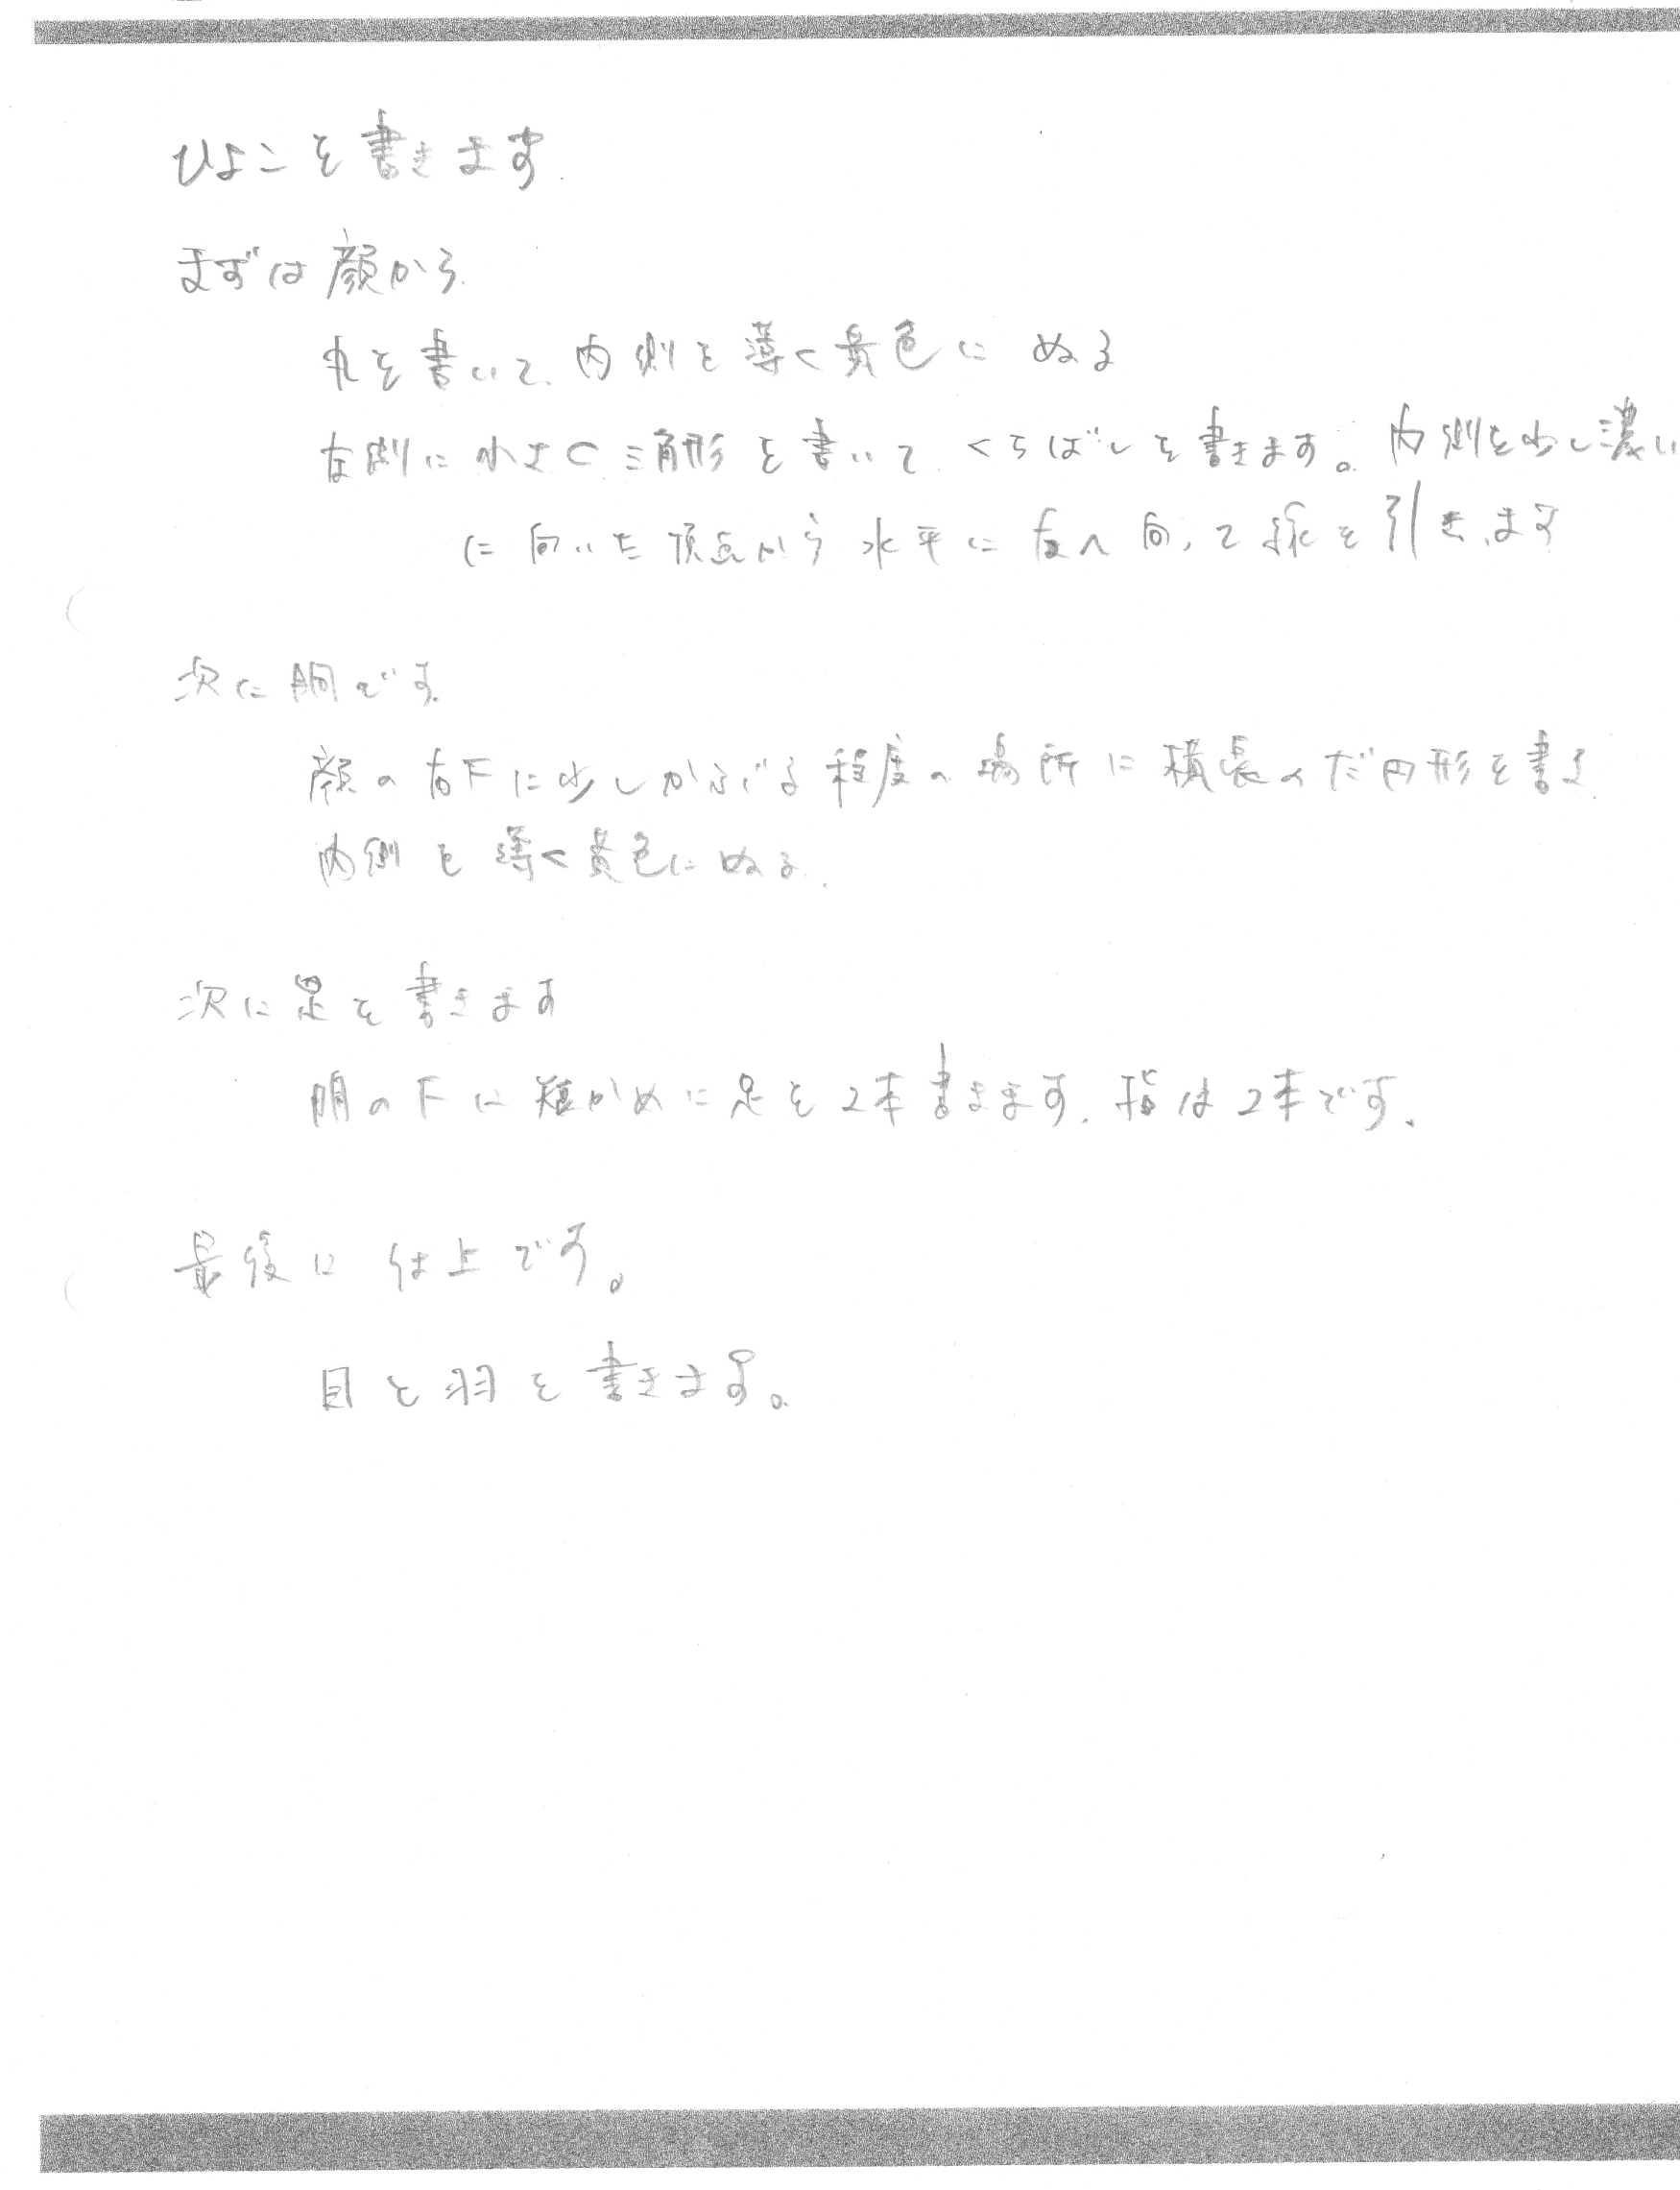 ひよこを書きます.
まずは顔から.
丸を書いて. 内側を薄く黄色に ぬる
左側に小さく三角形を書いて. くちばしを書きます。内側を少し濃い
に向いた頂点から水平に右へ向って線を引きます
次に胴です.
顔の右下に少しかぶる程度の場所に横長のだ円形を書き.
内側を薄く黄色にぬる.
次に足を書きます
胴の下に短かめに足を2本書きます. 指は2本です.
最後に仕上です。
目と羽を書きます。